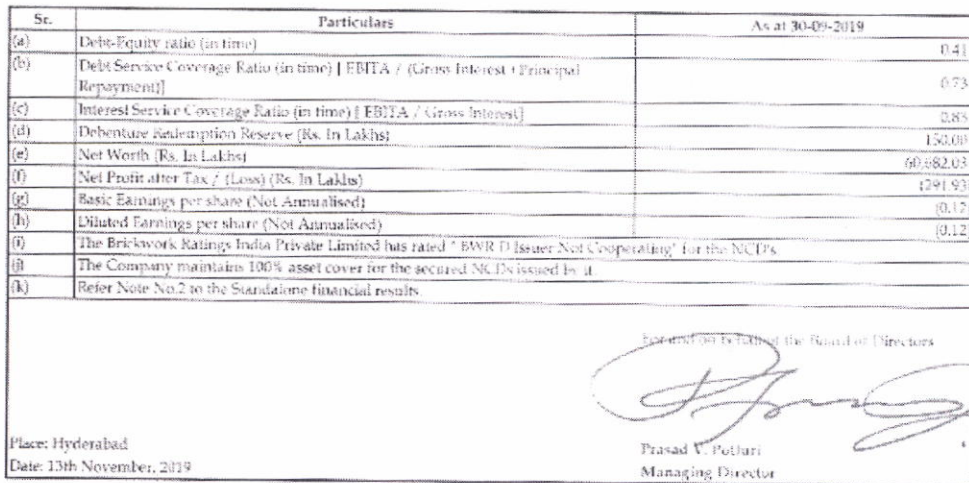 Sr. Particulars As at 30-09-2019
(a) Debt-Equity ratio (in time) 0.41
(b) Debt Service Coverage Ratio (in time) [ EBITA / (Gross Interest + Principal
Repayment)] 0.73
(c) Interest Service Coverage Ratio (in time) [ EBITA / Gross Interest] 0.85
(d) Debenture Redemption Reserve (Rs. In Lakhs) 150.00
(e) Net Worth (Rs. In Lakhs) 60,682.03
(f) Net Profit after Tax / (Loss) (Rs. In Lakhs) (291.93
(g) Basic Earnings per share (Not Annualised) (0.12
(h) Diluted Earnings per share (Not Annualised) (0.12
(i) The Brickwork Ratings India Private Limited has rated " BWR D Issuer Not Cooperating" for the NCD's
(j) The Company maintains 100% asset cover for the secured NCDs issued by it.
(k) Refer Note No.2 to the Standalone financial results.
For and on behalf of the Board of Directors
Place: Hyderabad
Prasad V. Potluri
Date: 13th November, 2019
Managing Director